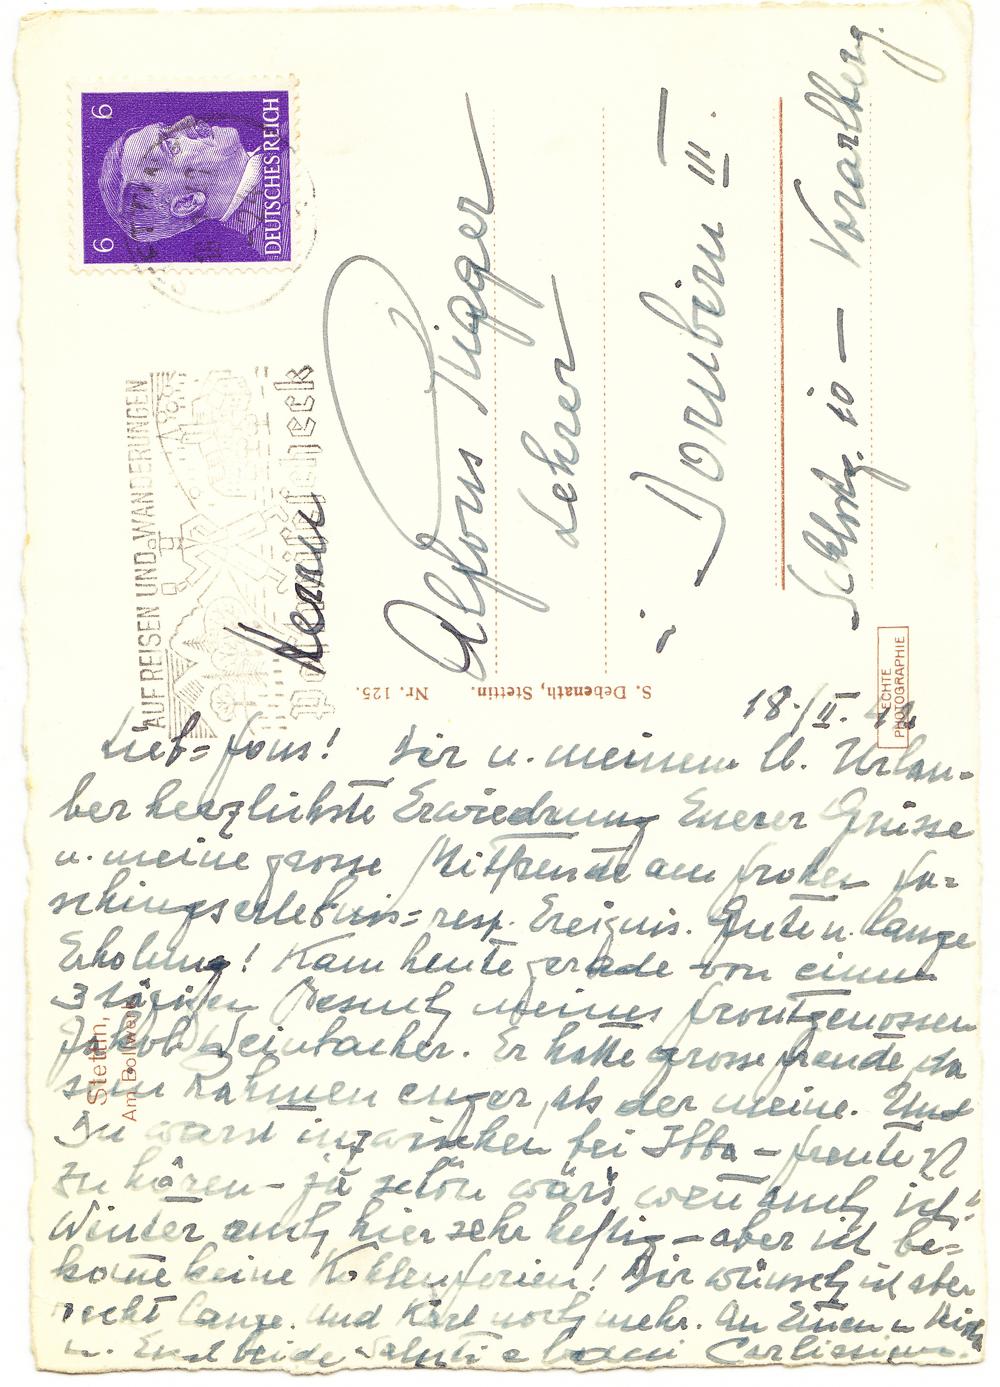 6 6
DEUTSCHES REICH
AUF REISEN UND WANDERUNGEN
Herrn
Alfons Rigger
Lehrer
Dornbirn III.
Schloßg. 10 – Vorarlberg.
S. Debenath, Stettin. Nr. 125.
ECHTE
PHOTOGRAPHIE
Stettin,
Am Bollwerk
18./II. 42
Lieb= Fons! Dir u. meinem lb. Urlau=
ber herzlichste Erwiedrung Euerer Grüsse
u. meine grosse Mitfreude am frohen Fa=
schingserlebnis= resp. Ereignis. Guten u. lange
Erholung! Kam heute gerade von einem
3 tägigen Besuch meines Frontgenossen
Jakob Weinbacher. Er hatte grosse Freude, da
sein Rahmen enger, als der meine. Und
Du warst inzwischen bei Ibba – freute
zu hören – zu schön wär's wenn auch ich!
Winter auch hier sehr heftig – aber ich be=
komme keine Kohlenferien! Dir wünsch ich aber
recht lange. Und Karl noch mehr. An Euch u.
u. Euch beide Saluti e baci